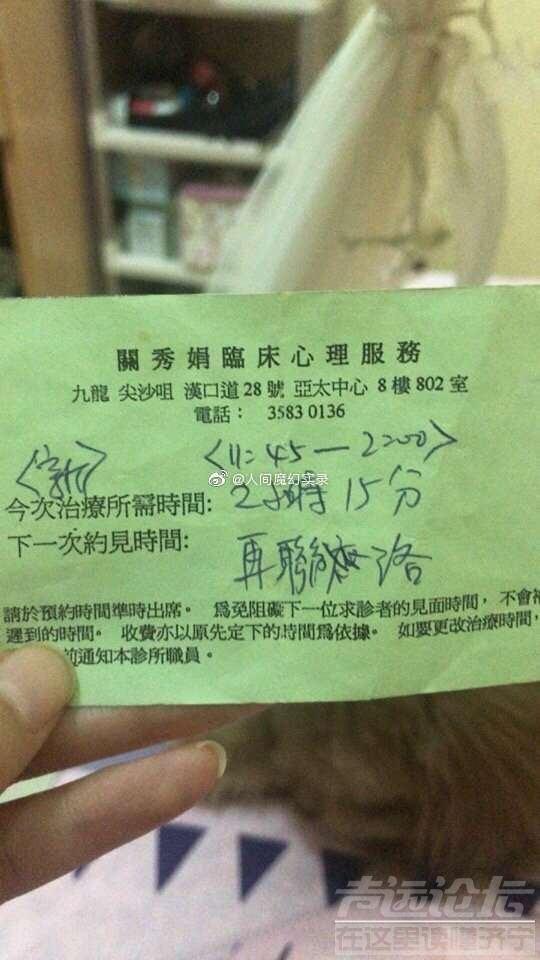 關秀娟臨床心理服務
九龍 尖沙咀 漢口道28號 亞太中心 8樓802室
電話： 3583 0136
<新> <11:45—2:00>
@人间魔幻实录
今次治療所需時間: 2小時15分
下一次約見時間: 再聯絡
請於預約時間準時出席。 爲免阻礙下一位求診者的見面時間，不會補
遲到的時間。 收費亦以原先定下的時間爲依據。 如要更改治療時間，
前通知本診所職員。
志远论坛
在这里读懂济宁